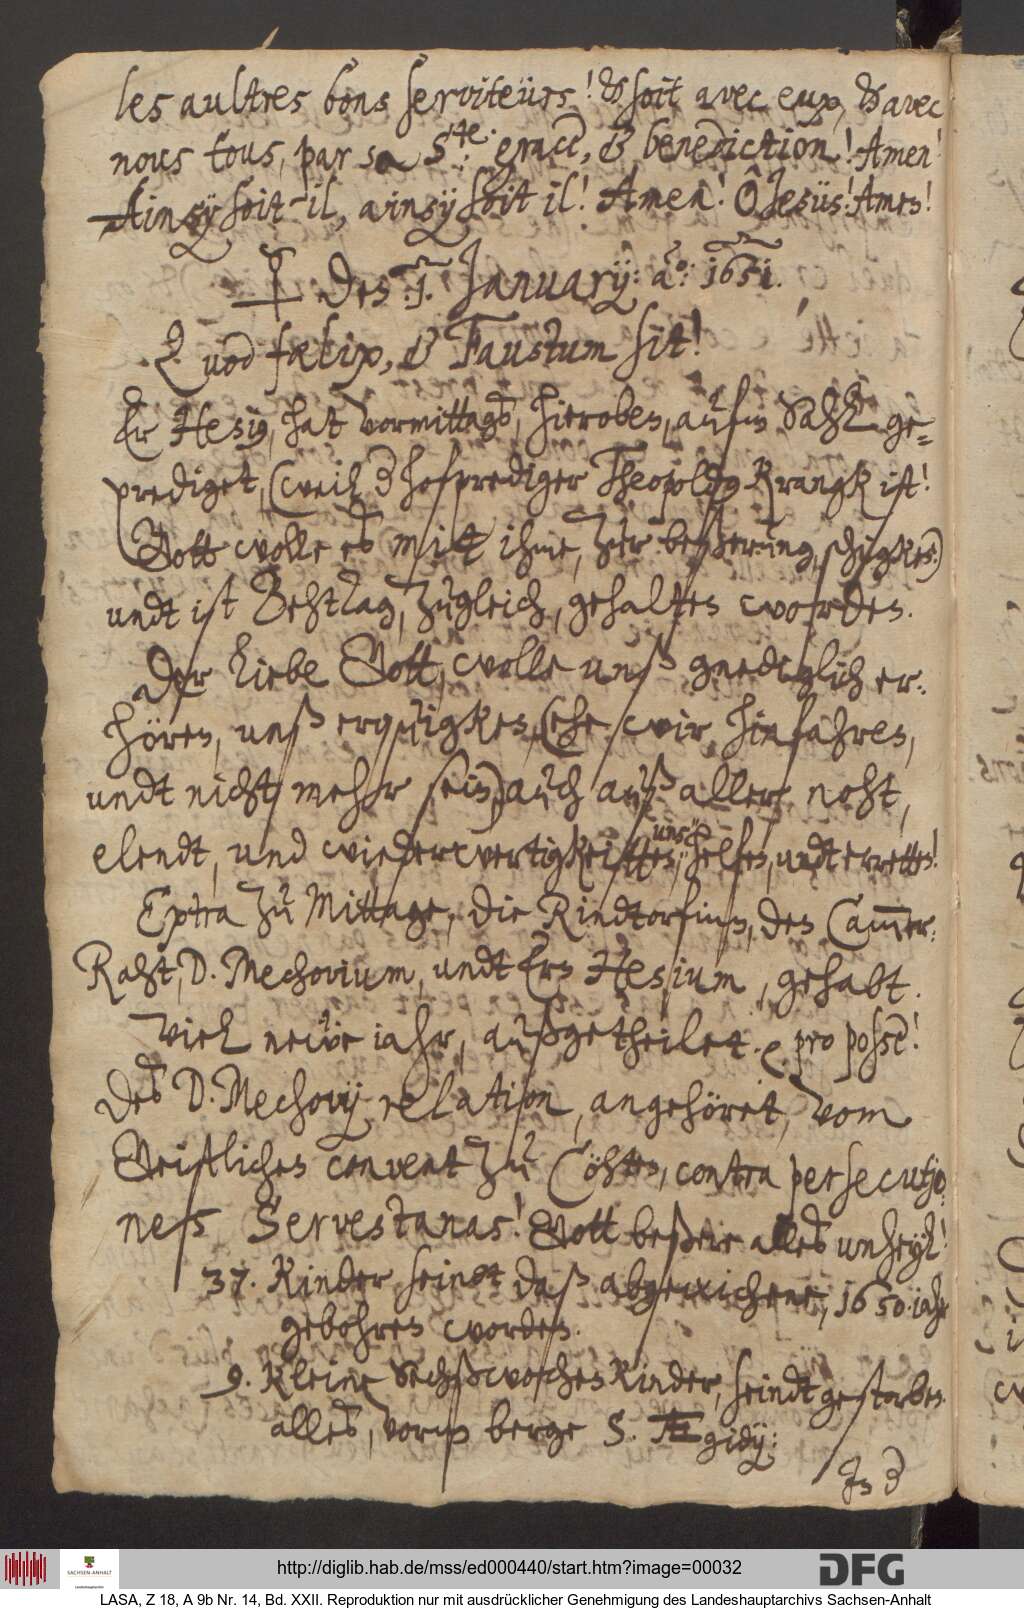 les aultres bons serviteürs! & soit avec eux, & avec
nous tous, par sa S.te gracë, & benediction! Amen!
Ainsy soit-il, ainsÿ soit il! Amen! Ô Jesüs! Amen!
des 1. Januarÿ: ao: 1651.
Quod foelix, & Faustum sit!
Er Hesig, hat vormittagß, hieroben, aufm Sahl ge-
prediget, (weil der hofprediger Theopoldg Krangk ist!
Gott wolle eß mitt ihme, zur beßerung, schigken)
undt ist Behttag, zugleich, gehalten worden.
Der liebe Gott, wolle unß gnediglich er-
hören, unß erquigken, (ehe wir, hinfahren,
undt nicht mehr sein) auch auß aller noht,
elendt, und wiederwertigkeitten, unß helfen, undt erretten!
Extra zu Mittage, die Rindtorfinn, den Cammer-
Raht, D. Mechovium, undt Ern Hesium, gehabt.
Viel neüe iahr, außgetheilet. e pro posse!
Deß D. Mechovij relation, angehöret, vom
Geistlichen convent zu Cöhten, contra persecutio-
nes Servestanas! Gott beßere alleß unheyl!
37. Kinder seindt daß abgewichene, 1650. iahr
gebohren worden.
9. Kleine Sechßwochen Kinder, seindt gestorben
alleß, vorm berge S. Ægidij:
In der
http://diglib.hab.de/mss/ed000440/start.htm?image=00032
SACHSEN-ANHALT
DFG
LASA, Z 18, A 9b Nr. 14, Bd. XXII. Reproduktion nur mit ausdrücklicher Genehmigung des Landeshauptarchivs Sachsen-Anhalt